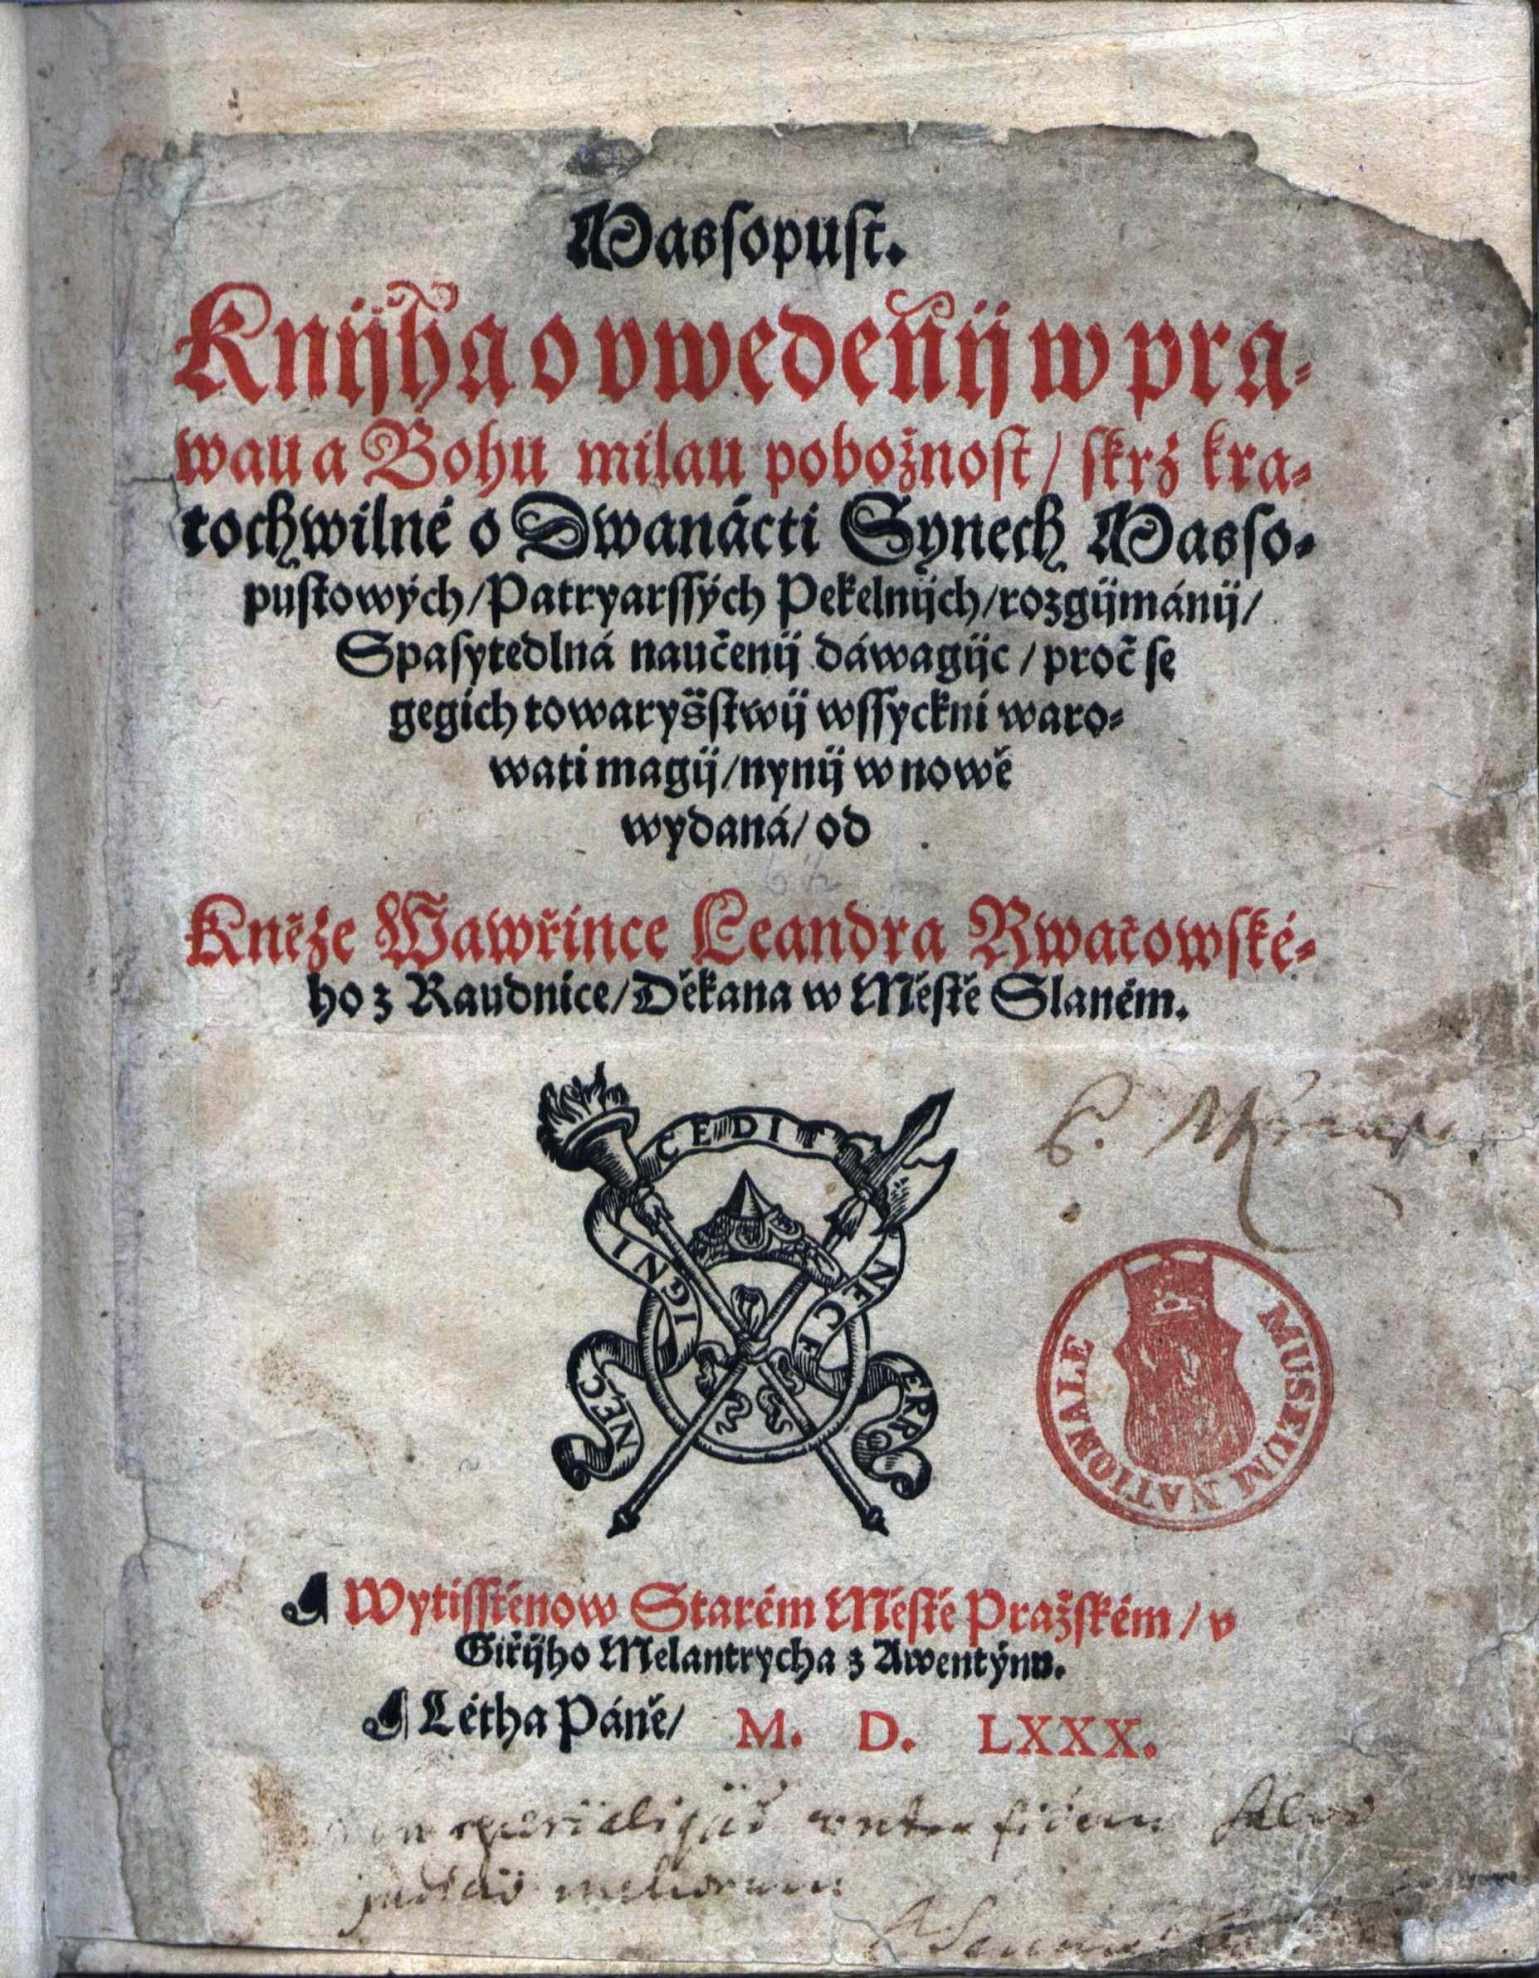 Massopust.
Knijha o vwedenij w pra-
wau a Bohu milau pobožnost / skrz kra-
tochwilné o Dwanácti Synech Masso-
pustowých / Patryarssých Pekelnijch / rozgijmánij /
Spasytedlná naučenij dáwagijc / proč se
gegich towaryšstwij wssyckni waro-
wati magij / nynij w nowě
wydaná / od
Kněze Wawřince Leandra Rwačowské-
ho z Raudnice / Děkana w Městě Slaném.
NEC IGNI CEDIT NEC FERRO
MUSEUM NATIONALE
Wytisstěno w Starém Městě Pražském / v
Giřijho Melantrycha z Awentýnu.
Létha Páně / M. D. LXXX.
fidem salvo